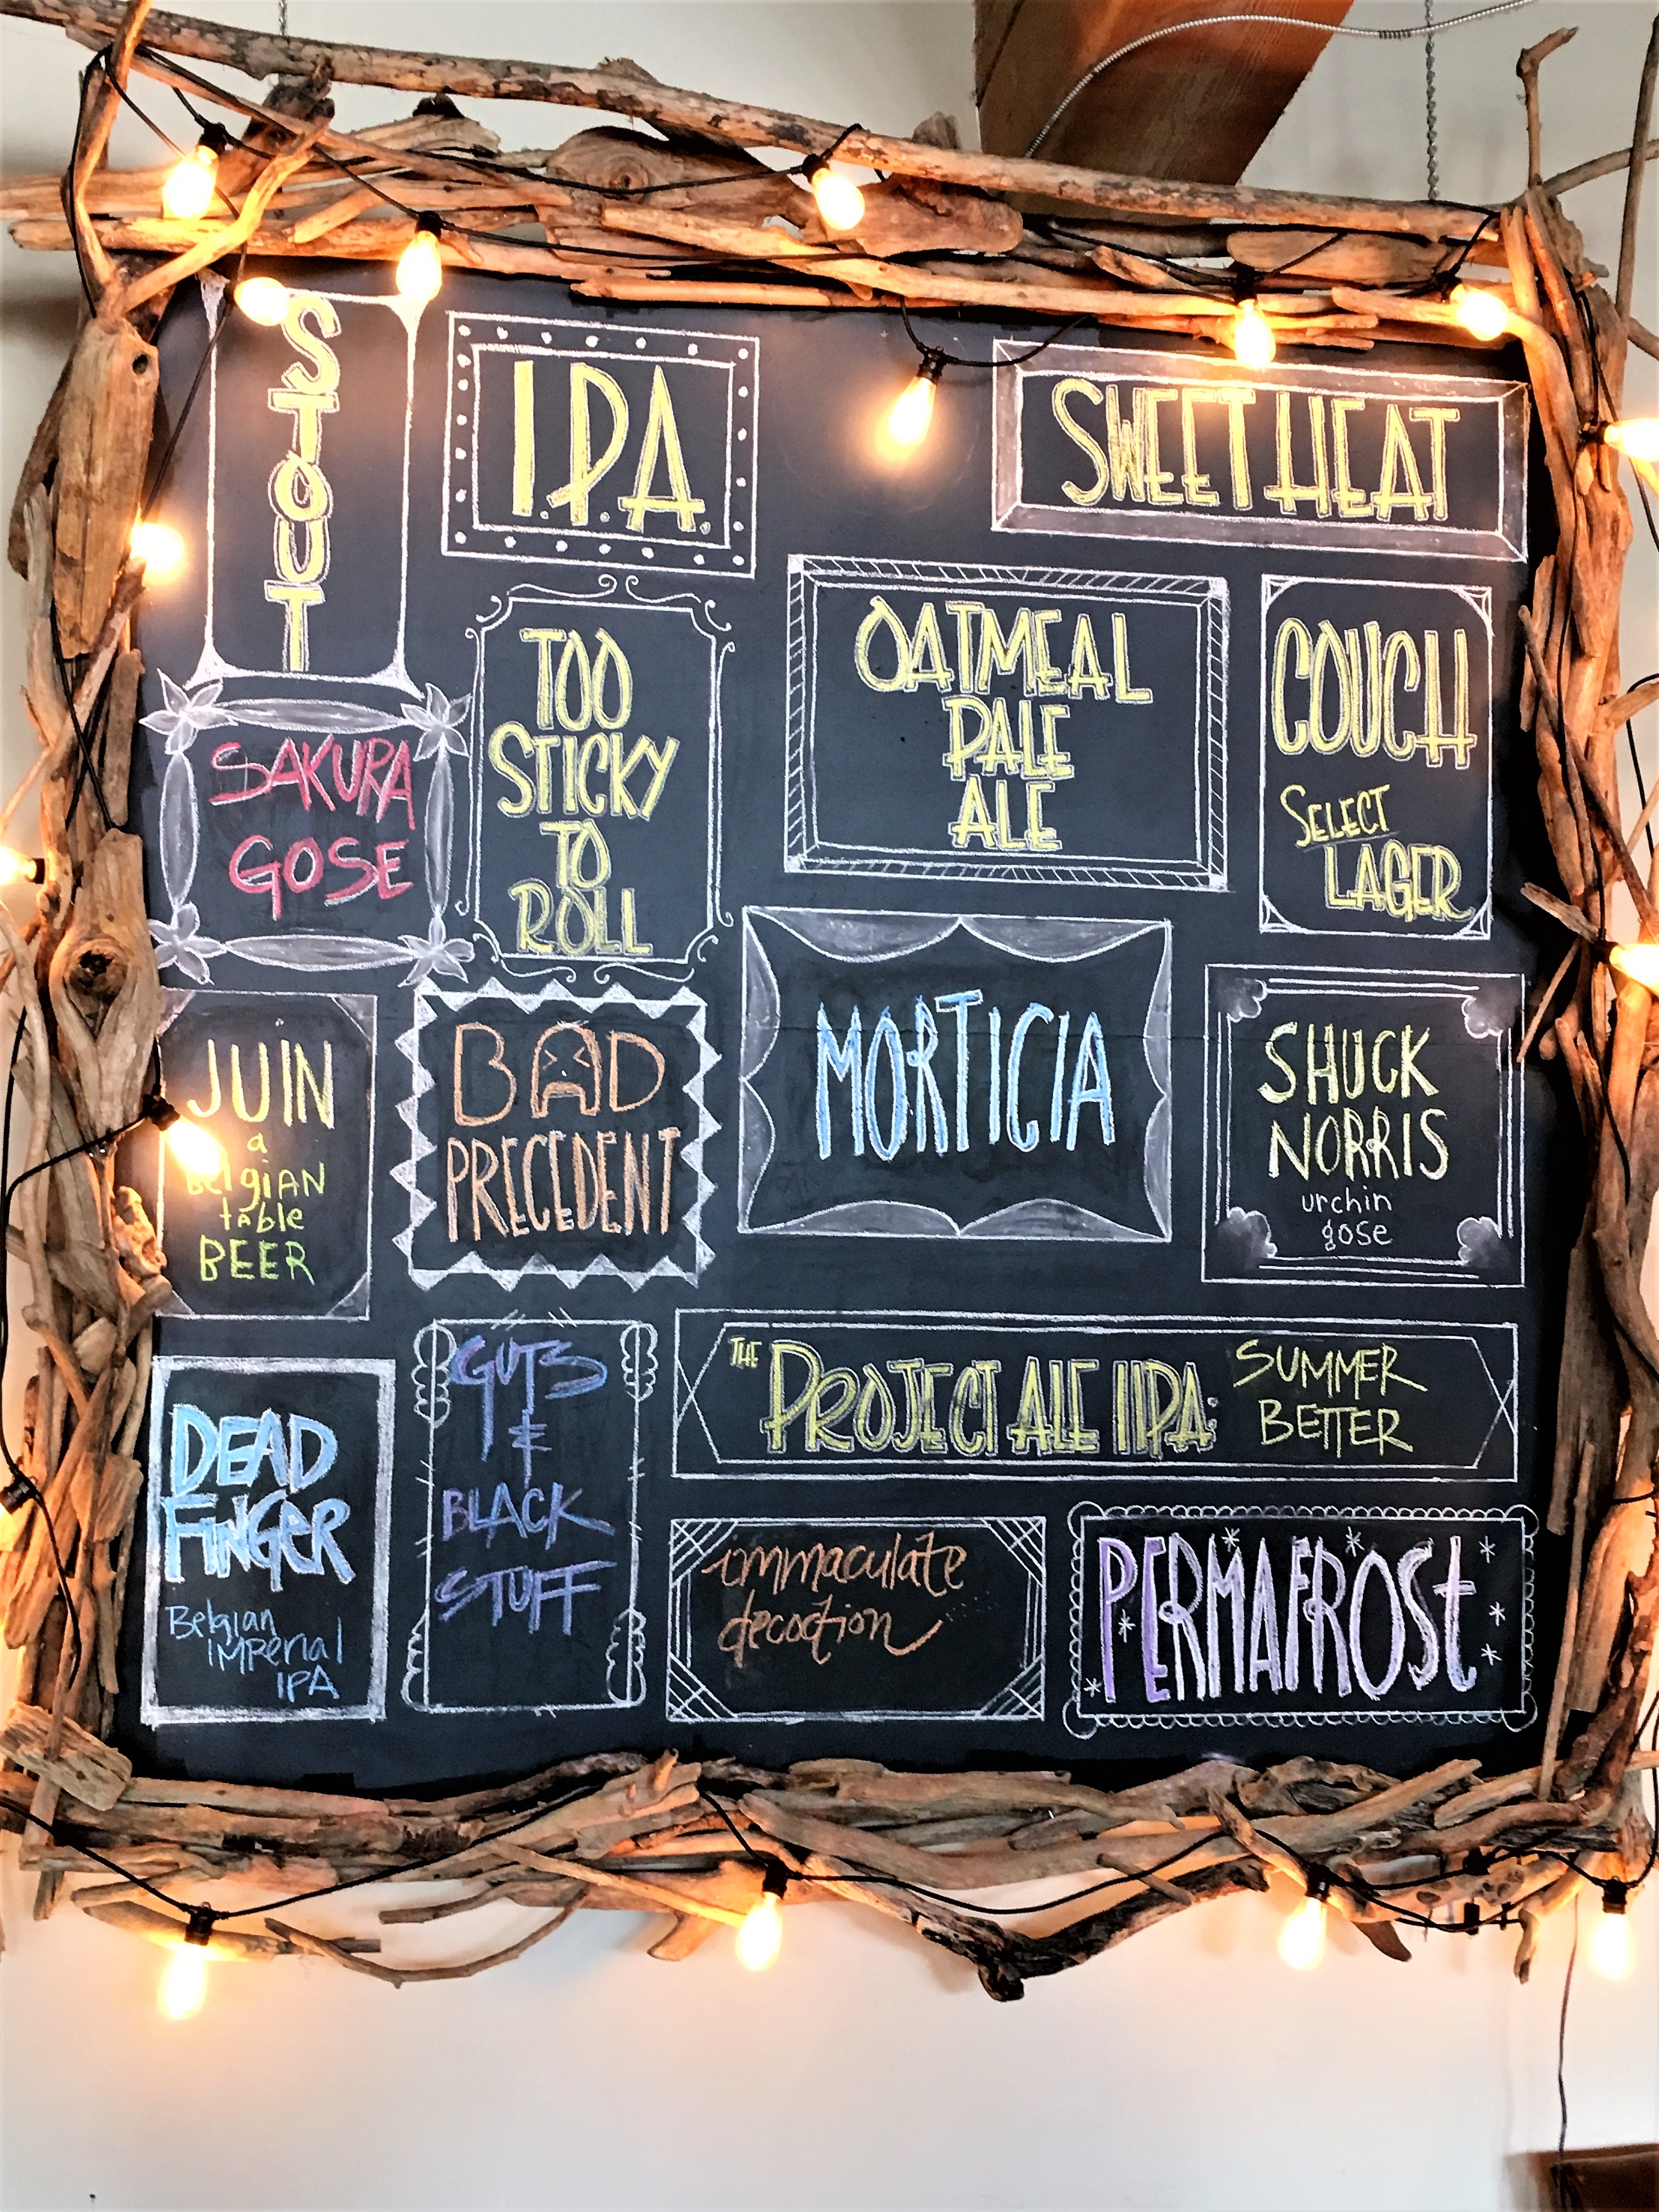 STOUT
I.P.A.
SWEET HEAT
TOO
STICKY
TO
ROLL
OATMEAL
PALE
ALE
COUCH
SELECT
LAGER
SAKURA
GOSE
JUIN
a
BelgiAN
tAble
BEER
BAD
PRECEDENT
MORTICIA
SHUCK
NORRIS
urchin
gose
DEAD
FINGER
Belgian
IMPerial
IPA
GUTS
&
BLACK
STUFF
THE PROJECT ALE IIPA: SUMMER
BETTER
immaculate
decoction
PERMAFROST